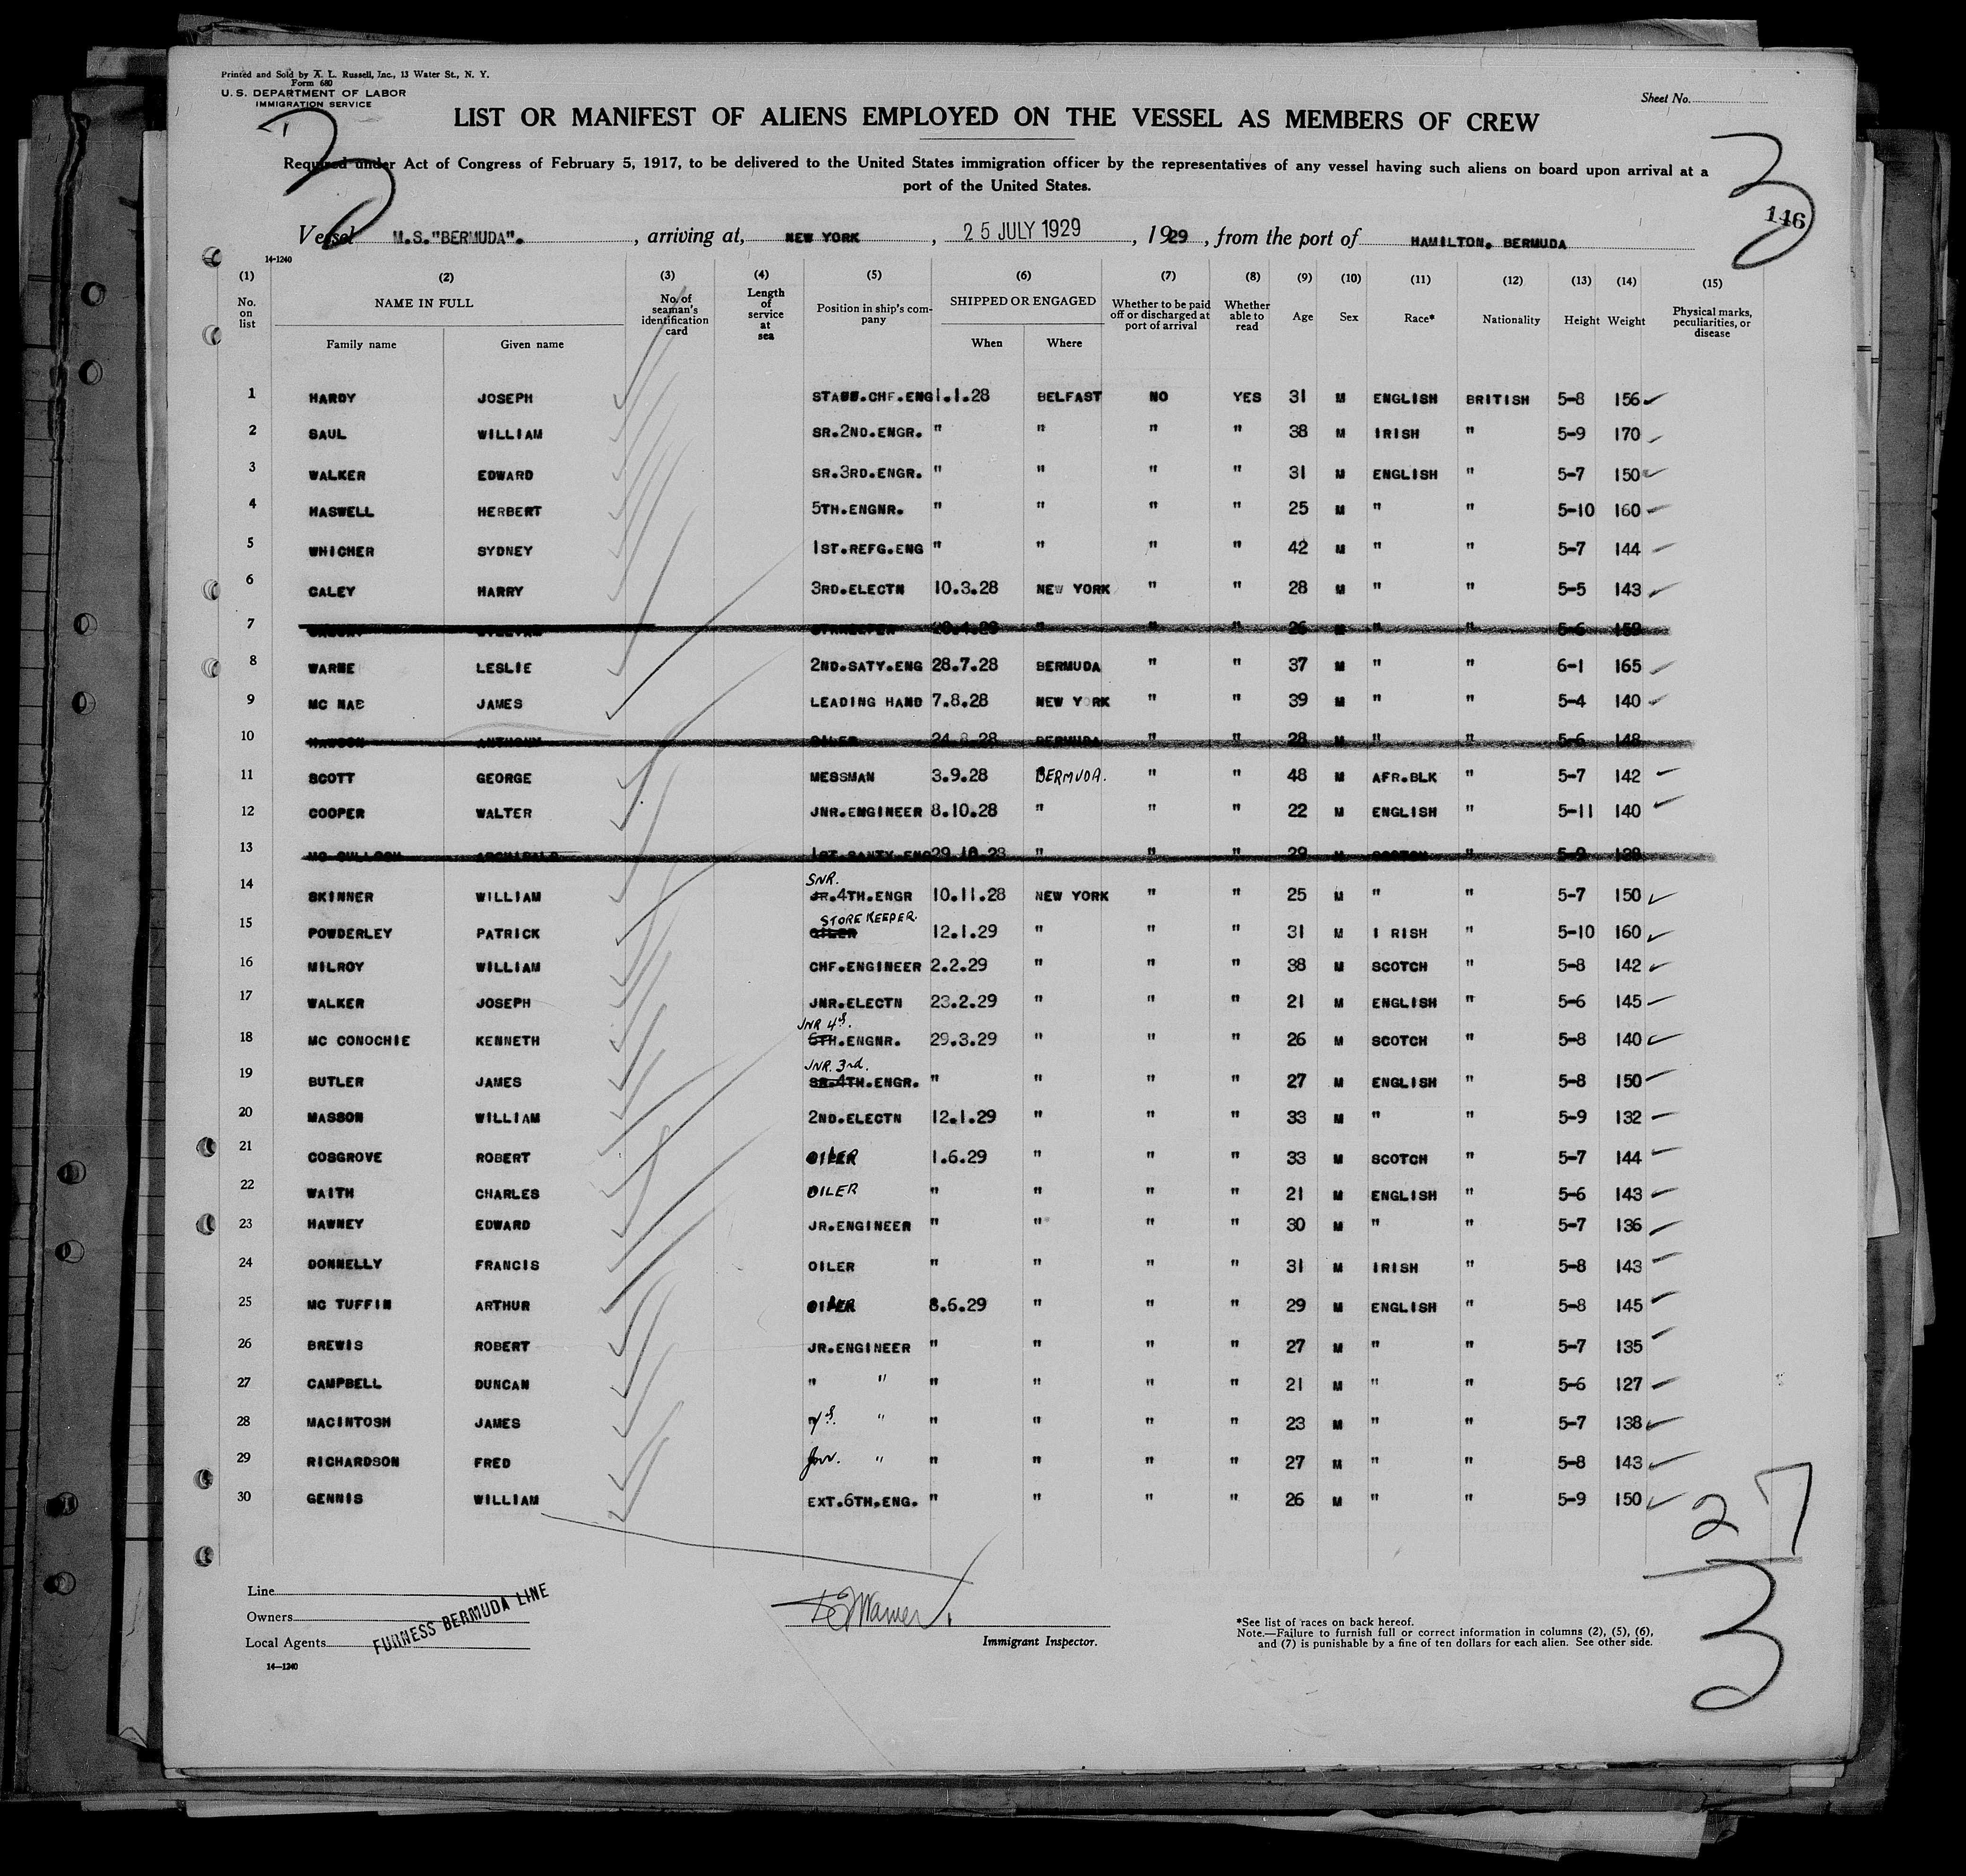 Printed and Sold by A. L. Russell, Inc., 13 Water St., N. Y.
Form 680
U. S. DEPARTMENT OF LABOR
IMMIGRATION SERVICE
Sheet No.
LIST OR MANIFEST OF ALIENS EMPLOYED ON THE VESSEL AS MEMBERS OF CREW
Required under Act of Congress of February 5, 1917, to be delivered to the United States immigration officer by the representatives of any vessel having such aliens on board upon arrival at a
port of the United States.
3 3
146
Vessel M.S."BERMUDA". , arriving at, NEW YORK , 25 JULY 1929 , 1929 , from the port of HAMILTON. BERMUDA
14-1240
(1) (2) (3) (4) (5) (6) (7) (8) (9) (10) (11) (12) (13) (14) (15)
No. on list NAME IN FULL Family name Given name No. of seaman's identification card Length of service at sea Position in ship's company SHIPPED OR ENGAGED When Where Whether to be paid off or discharged at port of arrival Whether able to read Age Sex Race* Nationality Height Weight Physical marks, peculiarities, or disease
1 HARDY JOSEPH CHF.ENG 1.1.28 BELFAST NO YES 31 M ENGLISH BRITISH 5-8 156
2 SAUL WILLIAM SR.2ND.ENGR. " " " " 38 M IRISH " 5-9 170
3 WALKER EDWARD SR.3RD.ENGR. " " " " 31 M ENGLISH " 5-7 150
4 HASWELL HERBERT 5TH.ENGNR. " " " " 25 M " " 5-10 160
5 WHICHER SYDNEY 1ST.REFG.ENG " " " " 42 M " " 5-7 144
6 CALEY HARRY 3RD.ELECTN 10.3.28 NEW YORK " " 28 M " " 5-5 143
7 " " " 26 M " " 5-6
8 WARNE LESLIE 2ND.SATY.ENG 28.7.28 BERMUDA " " 37 M " " 6-1 165
9 MC NAE JAMES LEADING HAND 7.8.28 NEW YORK " " 39 M " " 5-4 140
10 ANTHONY OILER 24.8.28 BERMUDA " " 28 M " " 5-6 148
11 SCOTT GEORGE MESSMAN 3.9.28 BERMUDA. " " 48 M AFR.BLK " 5-7 142
12 COOPER WALTER JNR.ENGINEER 8.10.28 " " " 22 M ENGLISH " 5-11 140
13 MC CULLOCH ARCHIBALD 1ST.SANTY.ENG 29.10.28 " " " 29 M SCOTCH " 5-9
14 SKINNER WILLIAM SNR. JR.4TH.ENGR 10.11.28 NEW YORK " " 25 M " " 5-7 150
15 POWDERLEY PATRICK STOREKEEPER. OILER 12.1.29 " " " 31 M I RISH " 5-10 160
16 MILROY WILLIAM CHF.ENGINEER 2.2.29 " " " 38 M SCOTCH " 5-8 142
17 WALKER JOSEPH JNR.ELECTN 23.2.29 " " " 21 M ENGLISH " 5-6 145
18 MC CONOCHIE KENNETH JNR 4th. 6TH.ENGNR. 29.3.29 " " " 26 M SCOTCH " 5-8 140
19 BUTLER JAMES JNR. 3rd. SR.4TH.ENGR. " " " " 27 M ENGLISH " 5-8 150
20 MASSON WILLIAM 2ND.ELECTN 12.1.29 " " " 33 M " " 5-9 132
21 COSGROVE ROBERT OILER 1.6.29 " " " 33 M SCOTCH " 5-7 144
22 WAITH CHARLES OILER " " " " 21 M ENGLISH " 5-6 143
23 HAWNEY EDWARD JR.ENGINEER " " " " 30 M " " 5-7 136
24 DONNELLY FRANCIS OILER " " " " 31 M IRISH " 5-8 143
25 MC TUFFIN ARTHUR OILER 8.6.29 " " " 29 M ENGLISH " 5-8 145
26 BREWIS ROBERT JR.ENGINEER " " " " 27 M " " 5-7 135
27 CAMPBELL DUNCAN " " " " " " 21 M " " 5-6 127
28 MACINTOSH JAMES " " " " " 23 M " " 5-7 138
29 RICHARDSON FRED Jnr. " " " " " 27 M " " 5-8 143
30 GENNIS WILLIAM EXT.6TH.ENG. " " " " 26 M " " 5-9 150
27
3
Line
Owners
Local Agents
FURNESS BERMUDA LINE
14—1240
Immigrant Inspector.
*See list of races on back hereof.
Note.—Failure to furnish full or correct information in columns (2), (5), (6),
and (7) is punishable by a fine of ten dollars for each alien. See other side.